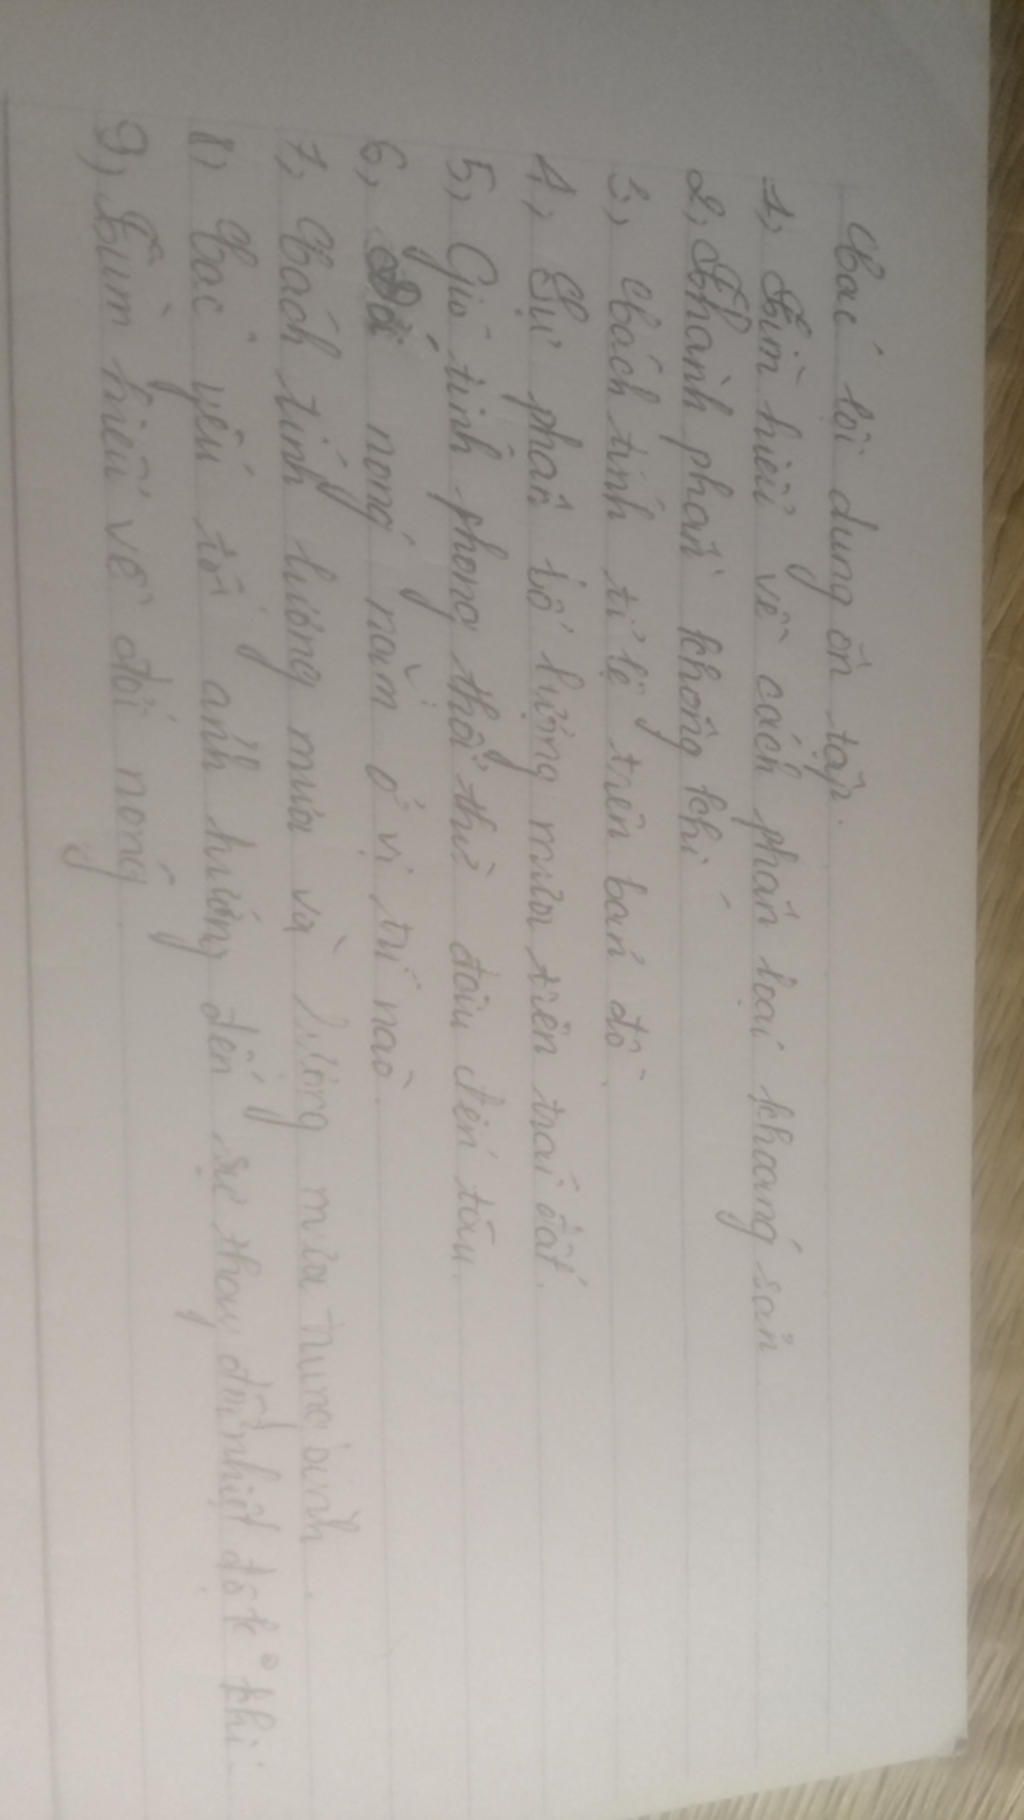 Các lội dung ôn tập.
1, Tìm hiểu về cách phân loại khoáng sản
2, Thành phần không khí
3, Cách tính tỉ lệ trên bản đồ
4, Sự phân bố lượng mưa trên trái đất.
5, Gió tính phong thổi thừ đâu đến tâu.
6, Đới nóng nằm ở vị trí nào.
7, Cách tính lượng mưa và lượng mưa trung bình.
8, Các yếu tố ảnh hưởng đến sự thay đổi nhiệt độ k° khí.
9, Tìm hiểu về đới nóng.